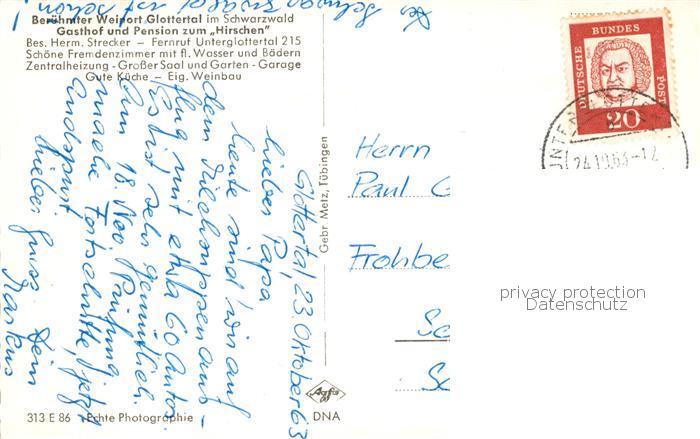 Der Schwarzwald ist schön!
Berühmter Weinort Glottertal im Schwarzwald
Gasthof und Pension zum „Hirschen"
Bes. Herm. Strecker - Fernruf Unterglottertal 215
Schöne Fremdenzimmer mit fl. Wasser und Bädern
Zentralheizung - Großer Saal und Garten - Garage
Gute Küche - Eig. Weinbau
Glottertal, 23. Oktober 63
Lieber Papa,
heute sind wir auf
dem Aus-
flug mit etwa 60 Autos.
Es ist sehr gemütlich.
Am 18. Nov. Prüfung,
mache Fortschritte, jetzt
Endspurt
Lieber Gruss Dein
Markus
Gebr. Metz, Tübingen
DEUTSCHE BUNDES POST
20
UNTER
24.10.63-12
Herrn
Paul G
Frohbe
Sc
Sc
privacy protection
Datenschutz
313 E 86 - Echte Photographie
Agfa
DNA